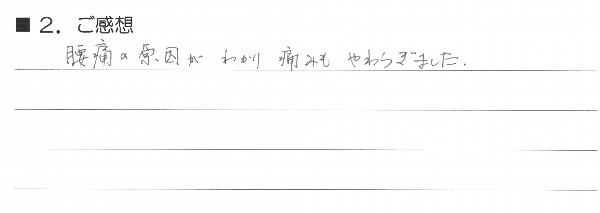 ■２．ご感想
腰痛の原因が わかり 痛みも やわらぎました.